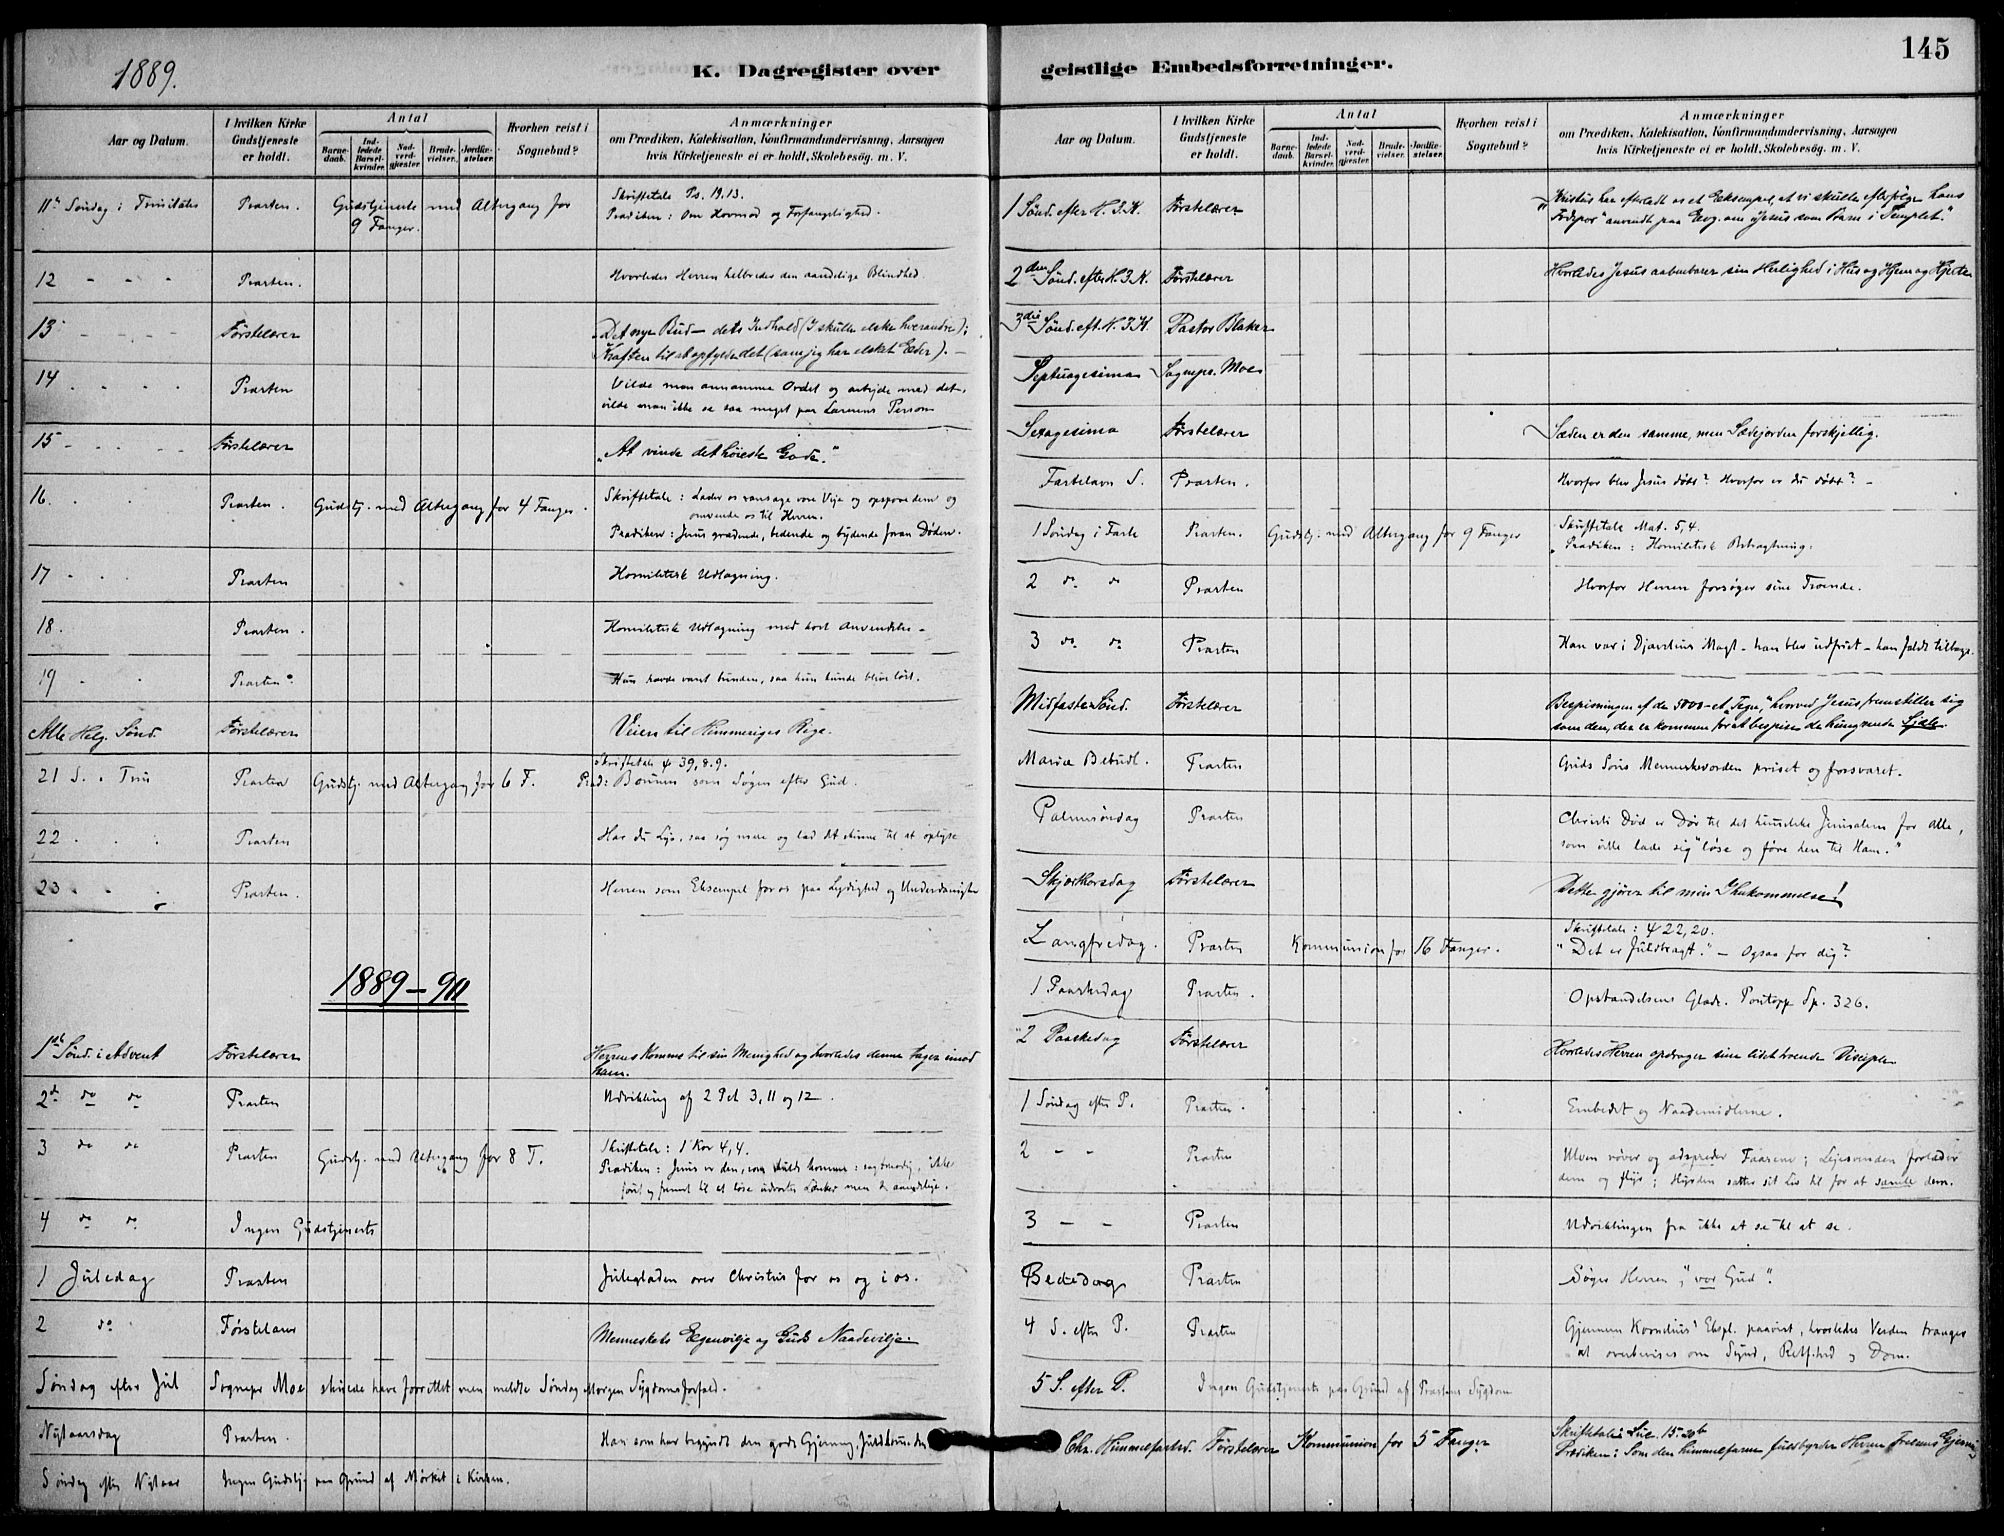 1889.
K. Dagregister over
Aar og Datum.
I hvilken Kirke Gudstjeneste er holdt.
Antal
Barnedaab.
Indledede Barselkvinder.
Nadverdgjester.
Brudevielser.
Jordfæstelser.
Hvorhen reist i Sognebud?
Anmærkninger
om Prædiken, Katekisation, Konfirmandundervisning, Aarsagen
hvis Kirketjeneste ei er holdt, Skolebesøg. m. V.
11te Søndag i Trinitatis Præsten. Gudstjeneste med Altergang for 9 Fanger. Skriftetale Ps. 19.13.
Prædiken: Om Hovmod og Forfængelighed.
12 - - - Præsten. Hvorledes Herren helbreder den aandelige Blindhed.
13 - - - Førstelærer Det nye Bud - dets Indhold (I skulle elske hverandre);
Kraften til at opfylde det (som jeg har elsket Eder). -
14 Præsten Vilde man annamme Ordet og arbejde med det,
vilde man ikke se saa meget paa Lærerens Person
15 - Førstelærer „At vinde det høieste Gode."
16. Præsten. Gudstj. med Altergang for 4 Fanger. Skriftetale: Lader os ransage vore Veje og opspore dem og
omvende os til Herren.
Prædiken: Jesus grædende, bedende og bydende foran Døden.
17 - Præsten Homiletisk Udlægning.
18. Præsten. Homiletisk Udlægning med kort Anvendelse -
19 Præsten. Hun havde været bunden, saa hun kunde blive løst.
Alle Helg. Sønd. Førstelærer Veien til Himmeriges Rige.
21 S. i Trin Præsten Gudstj. med Altergang for 6 F. Skriftetale ψ 39, 8.9.
Præd: Bønnen som Søgen efter Gud.
22 Præsten Har du Lys, saa søg mere og lad det skinne til at oplyse
23 Præsten. Herren som Eksempel for os paa Lydighed og Underdanighed
1889-90
1ste Sønd. i Advent Førstelærer Herrens Komme til sin Menighed og hvorledes denne tager imod
ham.
2de do do Præsten Udvikling af 2 Pet 3, 11 og 12.
3 do do Præsten Gudstj. med Altergang for 8 F. Skriftetale: 1 Kor 4,4.
Prædiken: Jesus er den, som skulde komme: sagtmodig, ikke
først og fremst til at løse udvortes Lænker men de aandelige.
4 do do Ingen Gudstjeneste
1 Juledag Præsten Juleglæden over Christus for os og i os.
2 do Førstelærer Menneskets Egenvilje og Guds Naadevilje.
Søndag efter Jul Sognepr Moe skulde have forrettet men meldte Søndag Morgen Sygdomsforfald.
Nytaarsdag Præsten. Han som har begyndt den gode Gjerning, fuldkomme den
Søndag efter Nytaar Ingen Gudstj. paa Grund af Mørket i Kirken.
geistlige Embedsforretninger.
145
Aar og Datum.
I hvilken Kirke Gudstjeneste er holdt.
Antal
Barnedaab.
Indledede Barselkvinder.
Nadverdgjester.
Brudevielser.
Jordfæstelser.
Hvorhen reist i Sognebud?
Anmærkninger
om Prædiken, Katekisation, Konfirmandundervisning, Aarsagen
hvis Kirketjeneste ei er holdt, Skolebesøg. m. V.
1 Sønd. efter H. 3. K. Førstelærer „Kristus har efterladt os et Eksempel, at vi skulle efterfølge hans
Fodspor" anvendt paa Evg. om Jesus som Barn i Templet."
2den Sønd. efter H. 3. K. Førstelærer Hvorledes Jesus aabenbarer sin Herlighed i Hus og Hjem og Hjerte
3die Sønd. eft. H. 3 K. Pastor Blaker
Septuagesima Sognepr. Moe
Sexagesima Førstelærer Sæden er den samme, men Sædejorden forskjellig.
Fastelavn S. Præsten. Hvorfor blev Jesus døbt? Hvorfor er du døbt? -
1 Søndag i Faste Præsten. Gudstj. med Altergang for 9 Fanger Skriftetale Mat. 5, 4.
Prædiken: Homiletisk Betragtning.
2 do do Præsten Hvorfor Herren forsøger sine Troende.
3 do do Præsten Han var i Djævelens Magt - han blev udfriet - han faldt tilbage.
Midfaste Sønd. Førstelærer Bespisningen af de 5000 - et „Tegn," hvorved Jesus fremstiller sig
som den, der er kommen for at bespise de hungrende Sjæle.
Mariæ Bebudl. Præsten Guds Søns Menneskevorden priset og forsvaret.
Palmesøndag Præsten Christi Død er Dør til det himmelske Jerusalem for alle,
som ville lade sig "løse og føre hen til Ham."
Skjærthorsdag Førstelærer Dette gjører til min Ihukommelse!
Langfredag. Præsten Kommunion for 16 Fanger. Skriftetale: ψ 22, 20.
"Det er fuldbragt." - Ogsaa for dig?
1 Paaskedag Præsten. Opstandelsens Glæde. Pontopp Sp. 326.
2 Paaskedag Førstelærer Hvorledes Herren opdrager sine lidettroende Disciple
1 Søndag efter P. Præsten. Embedet og Naademidlerne.
2 - - Præsten Ulven røver og adspreder Faarene; Lejesvenden forlader
dem og flyr; Hyrden sætter sit Liv til for at samle dem.
3 - - Præsten Udviklingen fra ikke at se til at se.
Bededag Præsten Søger Herren, "vor Gud".
4 S. efter P. Præsten Gjennem Kornelius' Ekspl. paavist, hvorledes Verden trænger
at overbevises om Synd, Retfærd og Dom.
5 S. efter P. Ingen Gudstjeneste paa Grund af Præstens Sygdom
Chr. Himmelfartsd. Førstelærer Kommunion for 5 Fanger Skriftetale: Luc. 15. 20b
Prædiken: Som den himmelfarne fuldbyrder Herren Frelsens Gjerning